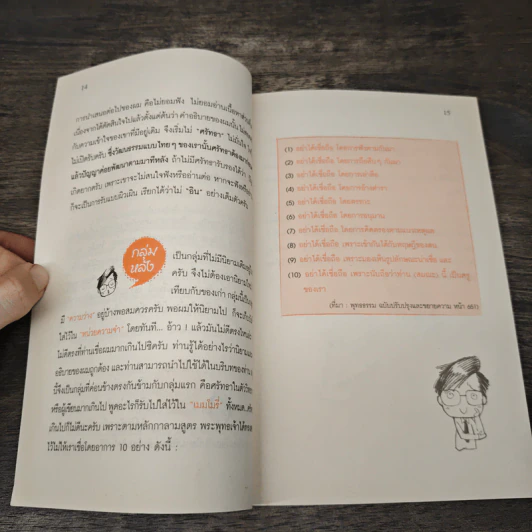 14
การนำเสนอต่อไปของผม คือไม่ยอมฟัง ไม่ยอมอ่านเนื้อหา
เนื่องจากได้ตัดสินใจไปแล้วตั้งแต่ต้นว่า คำอธิบายของผมนั้น
กับความเข้าใจของเขาที่มีอยู่เดิม จึงเริ่มไม่ "ศรัทธา"
ไม่เปิดรับครับ ซึ่งวัฒนธรรมแบบไทย ๆ ของเรานั้นศรัทธาต้อง
แล้วปัญญาค่อยพัฒนาตามมาทีหลัง ถ้าไม่มีศรัทธารับรองได้ว่า
เกิดยากครับ เพราะเขาจะไม่สนใจฟังหรืออ่านต่อ
ก็จะเป็นการรับแบบผิวเผิน เรียกได้ว่าไม่ "อิน" อย่างเต็มตัวครับ
กลุ่ม
หลัง
เป็นกลุ่มที่ไม่มีนิยามเดิมอยู่
ครับ จึงไม่ต้องเอานิยาม
เทียบกับของเก่า กลุ่มนี้
มี "ความว่าง" อยู่บ้างพอสมควรครับ พอผมให้นิยามไป ก็จะ
ใส่ไว้ใน "หน่วยความจำ" โดยทันที... อ้าว ! แล้วมันไม่ดีตรงไหน
ไม่ดีตรงที่ท่านเชื่อผมมากเกินไปซิครับ ท่านรู้ได้อย่างไรว่านิยาม
อธิบายของผมถูกต้อง และท่านสามารถนำไปใช้ได้ในบริบทของท่าน
นี้จึงเป็นกลุ่มที่ค่อนข้างตรงกันข้ามกับกลุ่มแรก คือศรัทธาในตัว
หรือผู้เขียนมากเกินไป พูดอะไรก็รับไปใส่ไว้ใน "เมมโมรี่" ทั้งหมด
เกินไปก็ไม่ดีนะครับ เพราะตามหลักกาลามสูตร พระพุทธเจ้าได้
ไว้ไม่ให้เราเชื่อโดยอาการ 10 อย่าง ดังนี้ :
15
(1) อย่าได้เชื่อถือ โดยการฟังตามกันมา
(2) อย่าได้เชื่อถือ โดยการถือสืบๆ กันมา
(3) อย่าได้เชื่อถือ โดยการเล่าลือ
(4) อย่าได้เชื่อถือ โดยการอ้างตำรา
(5) อย่าได้เชื่อถือ โดยตรรกะ
(6) อย่าได้เชื่อถือ โดยการอนุมาน
(7) อย่าได้เชื่อถือ โดยการคิดตรองตามแนวเหตุผล
(8) อย่าได้เชื่อถือ เพราะเข้ากันได้กับทฤษฎีของตน
(9) อย่าได้เชื่อถือ เพราะมองเห็นรูปลักษณะน่าเชื่อ และ
(10) อย่าได้เชื่อถือ เพราะนับถือว่าท่าน (สมณะ) นี้ เป็นครู
ของเรา
(ที่มา : พุทธธรรม ฉบับปรับปรุงและขยายความ หน้า 651)